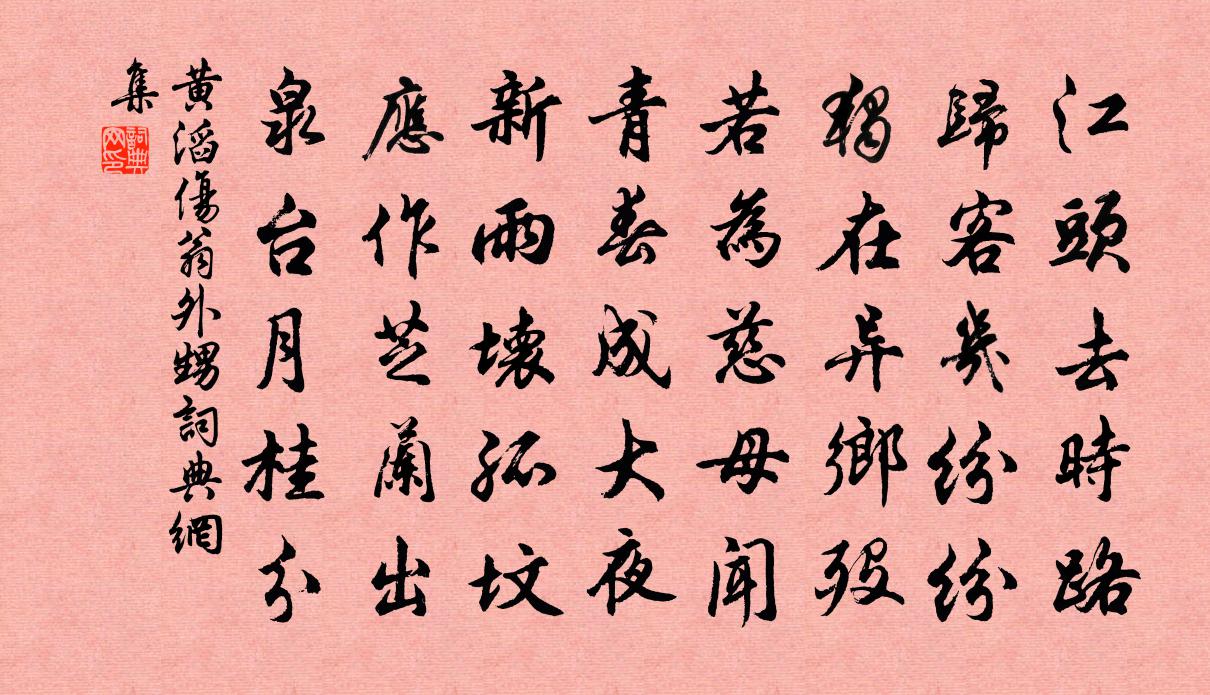 江頭去時路
歸客幾紛紛
獨在异鄉歿
若為慈母聞
青春成大夜
新雨壞孤墳
應作芝蘭出
泉台月桂分
黃滔傷翁外甥詞典網
集
詞典
网印